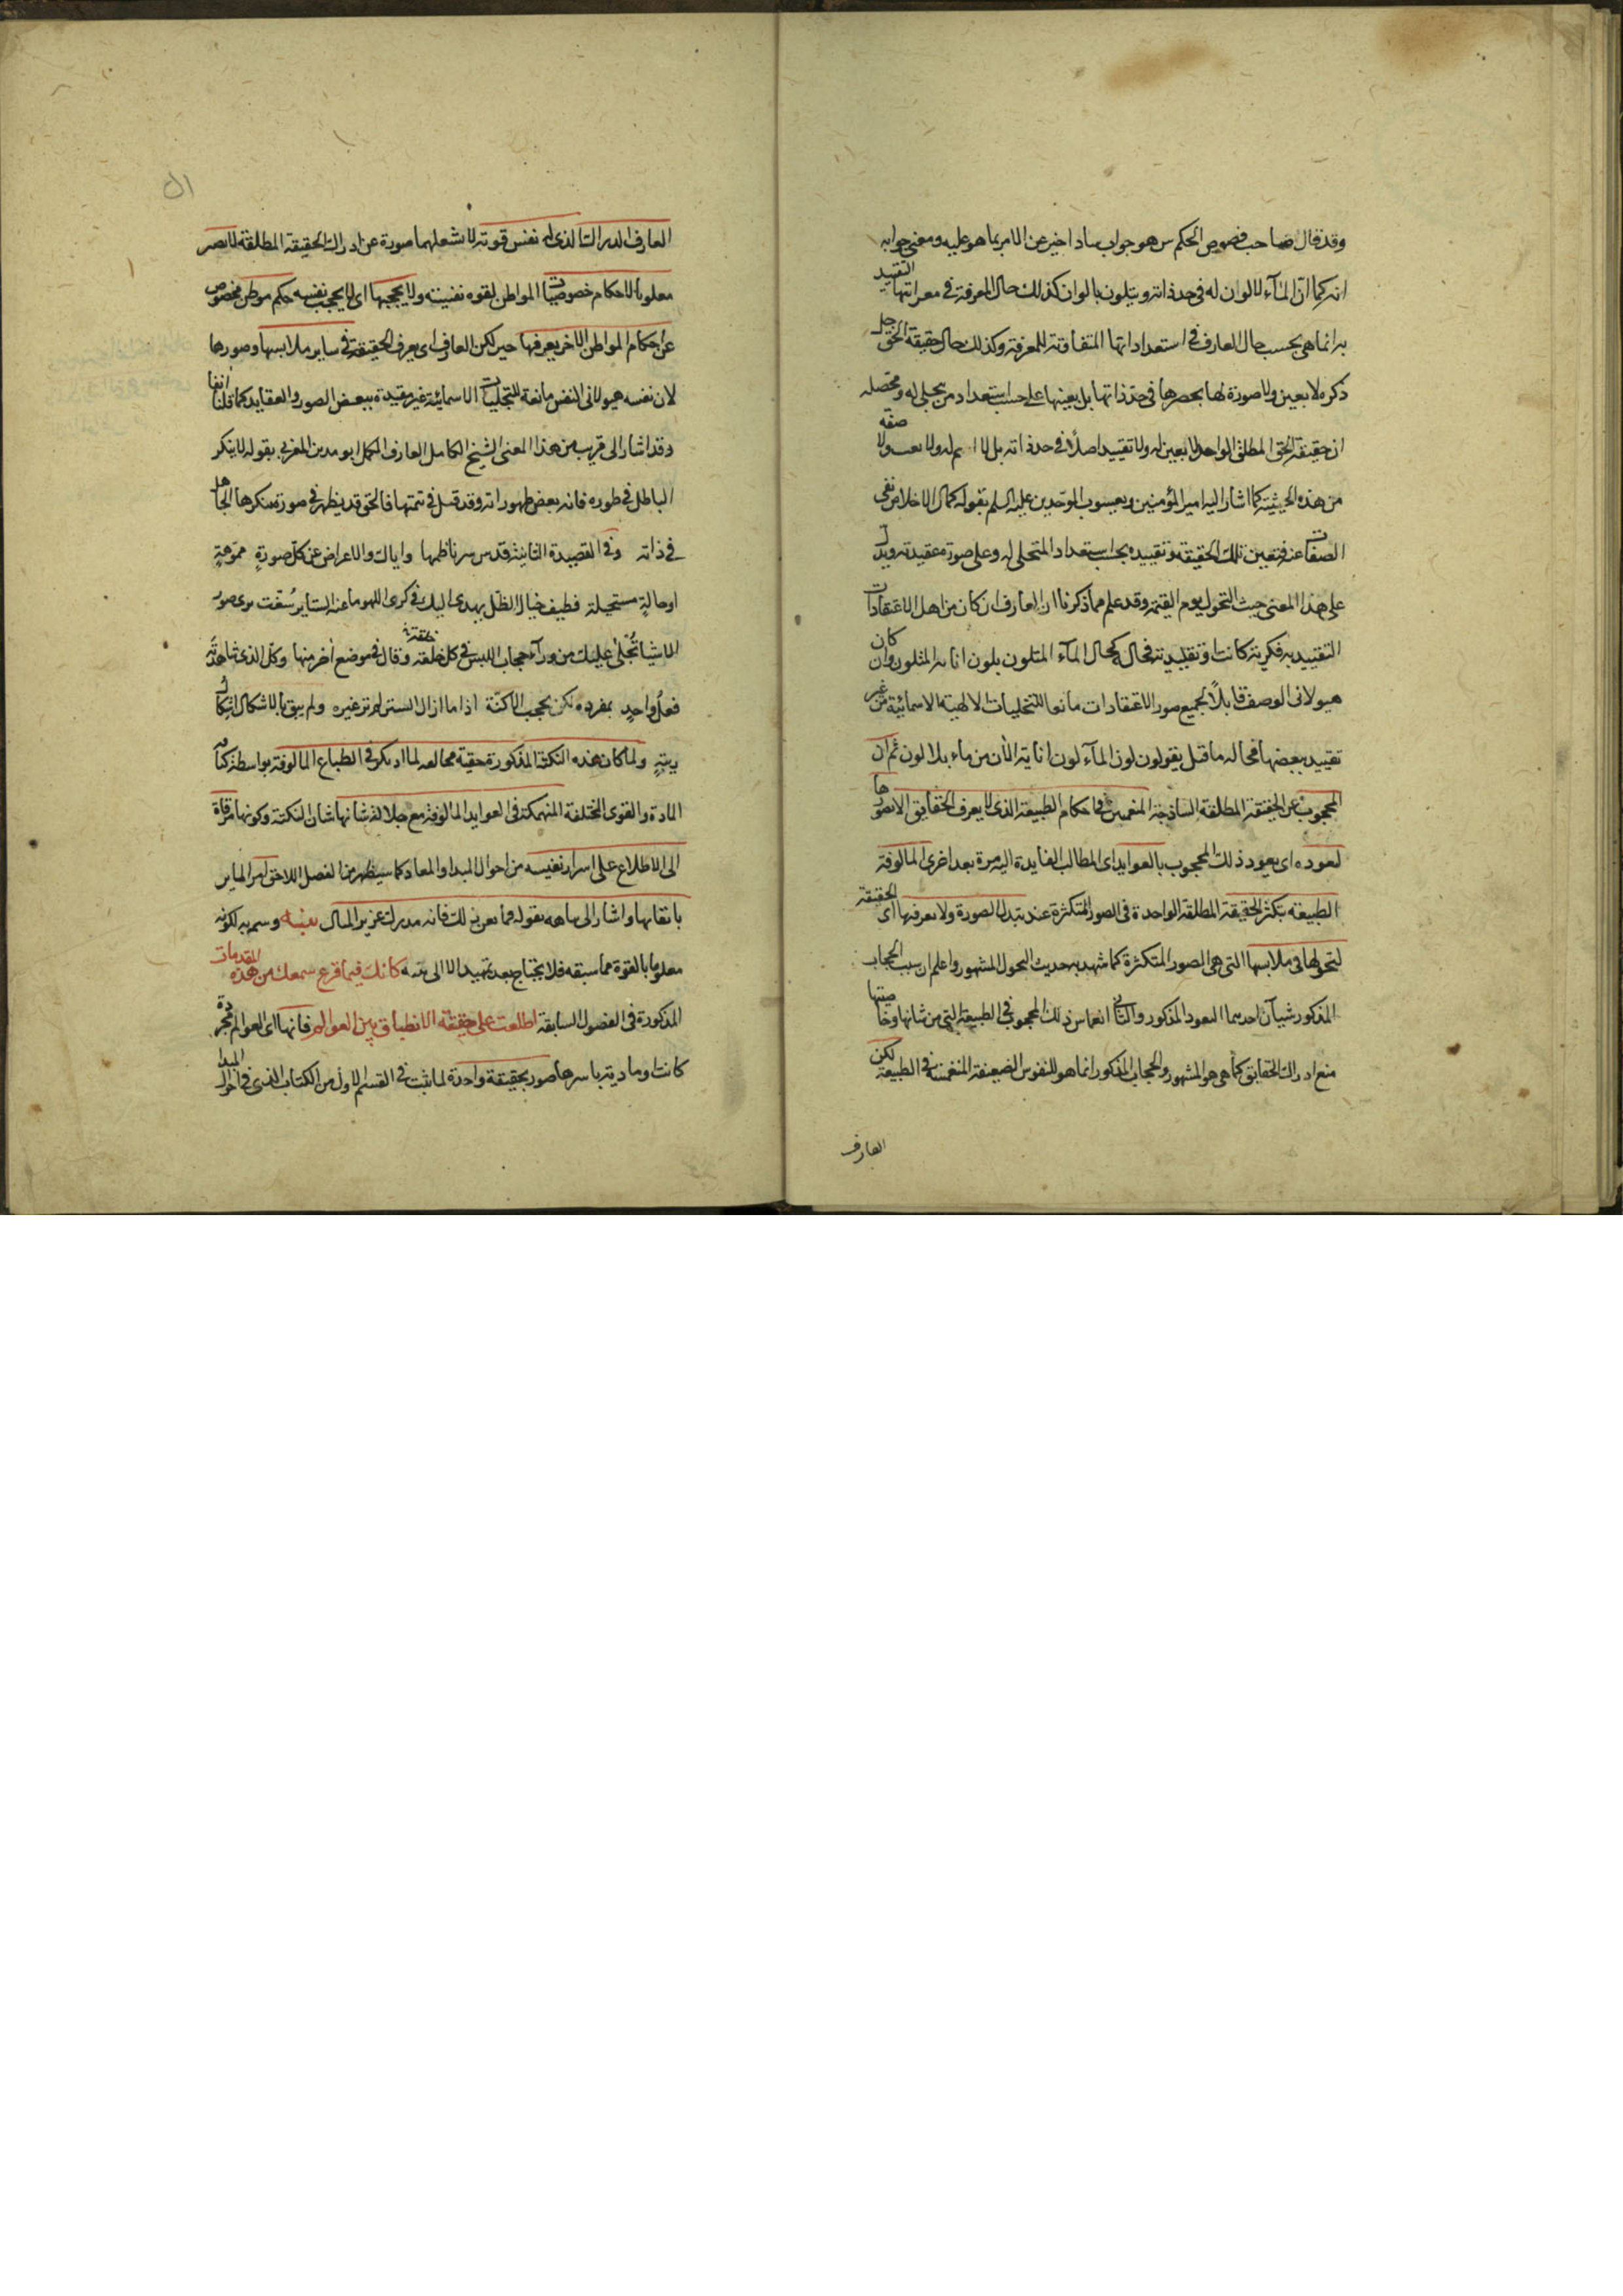 وقد قال صاحب فصوص الحكم س هو جواب ساد اخبر عن الامر بما هو عليه ومعنى جوابه
انه كما ان المآء لا لون له فى حد ذاته ويتلون بالوان كذلك حال المعرفة فى معراتها التقييد
به انما هى بحسب حال العارف فى استعداداتها المتفاوتة للمعرفة وكذلك حال حقيقة الحق جل
ذكره لا بعين ولا صورة لها بحصرها فى حد ذاتها بل يعينها على حسب استعداد من يتجلى له ومحصله
ان حقيقة الحق المطلق الواحد لا يعين له ولا تقييد اصلا فى حد ذاته بل لا اسم له ولا نعت ولا صفة
من هذه الحيثية كما اشار اليه امير المؤمنين ويعسوب الموحدين عليه السلم بقوله كمال الاخلاص نفى
الصفات عنه فتعين تلك الحقيقة وتقييده بحسب استعداد المتجلى له وعلى صورة عقيدته ويدل
على هذا المعنى حيث التحول يوم القيمة وقد علم مما ذكرنا ان العارف ان كان من اهل الاعتقادات
التقييدية فكرية كانت او تقليدية فحاله كحال المآء المتلون بلون انائه المتلون وان كان
هيولانى الوصف قابلاً لجميع صور الاعتقادات مانعا للتجليات الالهية الاسمائية من غير
تقييد ببعضها فحاله ما قيل يقولون لون المآء لون انايه الان من ماء بلا لون ثم ان
المحجوب عن الحقيقة المطلقة الساذجة المنغمس فى احكام الطبيعة الذى لا يعرف الحقايق الا بصورها
لعوده اى يعود ذلك المحجوب بالعوايد اى المطالب الفايدة اليه مرة بعد اخرى المالوفة
الطبيعة بتكثر الحقيقة المطلقة الواحدة فى الصور المتكثرة عند تبدل الصورة ولا يعرفها اى الحقيقة
لتحولها فى ملابسها التى هى الصور المتكثرة كما شهد به حديث التحول المشهور واعلم ان سبب الحجاب
المذكور شيآن احدهما التعود المذكور والثانى انغماس ذلك المحجوب فى الطبيعة التى من شانها وخاصيتها
منع ادراك الحقايق كما هى هو المشهور والحجاب المذكور انما هو للنفوس الضعيفة المنغمسة فى الطبيعة لكن
العارف
العارف الدراك الذى له نفس قوية لا تشغلها صورة عن ادراك الحقيقة المطلقة لا يصير
معلوبا لاحكام خصوصيات المواطن لقوة نفسيته ولا يحجبها اى لا يحجب نفسه حكم موطن مخصوص
عن احكام المواطن الاخر يعرفها حين لكن العارف اى يعرف الحقيقة فى ساير ملابسها وصورها
لان نفسه هيولانى النفس مانعة للتجليات الاسمائية غير مقيدة ببعض الصور والعقايد كما قلنا انفا
وقد اشار الى قريب من هذا المعنى الشيخ الكامل العارف المكمل ابو مدين المغربى بقوله لا ينكر
الباطل فى طوره فانه بعض ظهوراته وقد قيل فى تتمتها فالحق قد يظهر فى صورة ينكرها الجاهل
فى ذاته وفى القصيدة التائية قدس سر ناظمها واياك والاعراض عن كل صورةٍ مموّهةٍ
او حالةٍ مستحيلة فطيف خيال الظل يهدى اليك فى كرى اللهو ما عنه الستاير شقت يرى صور
الاشيا تُجلى عليك من ورآء حجاب اللبس فى كل خلعة وقال فى موضع اخر منها وكل الذى شاهدته
فعلُ واحدٍ بمفرده لكن بحجب الاكنّة اذا ما ازال الستر لم تر غيره ولم يبق بالاشكال اشكال
ريبةٍ ولما كان هذه النكتة المذكورة حقية مخالفه لما ادركر فى الطباع المالوفة بواسطة كثافة
المادة والقوى المختلفة المنهمكة فى العوايد المالوفة مع جلالة شانها شان النكتة وكونها مرقاة
الى الاطلاع على اسرار نفيسه من احوال المبدا والمعاد كما سيظهر من الفصل اللاحق امر الماير
باتقانها واشار الى ما هه بقوله فما يعن ذلك فانه مدرك عزيز المنال تنبيه وسم به لكونه
معلوما بالقوة مما سبقه فلا يحتاج بعد تمهيد الا الى تنبه كانك فيما قرع سمعك من هذه المقدمات
المذكورة فى الفصول السابقة اطلعت على حقيقة الانطباق بين العوالم فانها اى العوالم مجردة
كانت او مادية باسرها صور بحقيقة واحدة لما ثبت فى القسم الاول من الكتاب الذى فى احوال المبدا